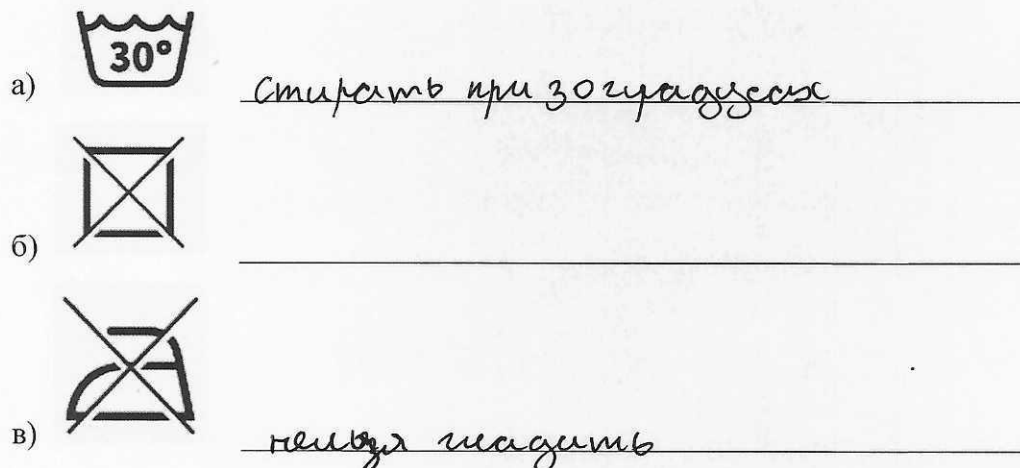 30°
а) Стирать при 30 градусах
б)
в) нельзя гладить